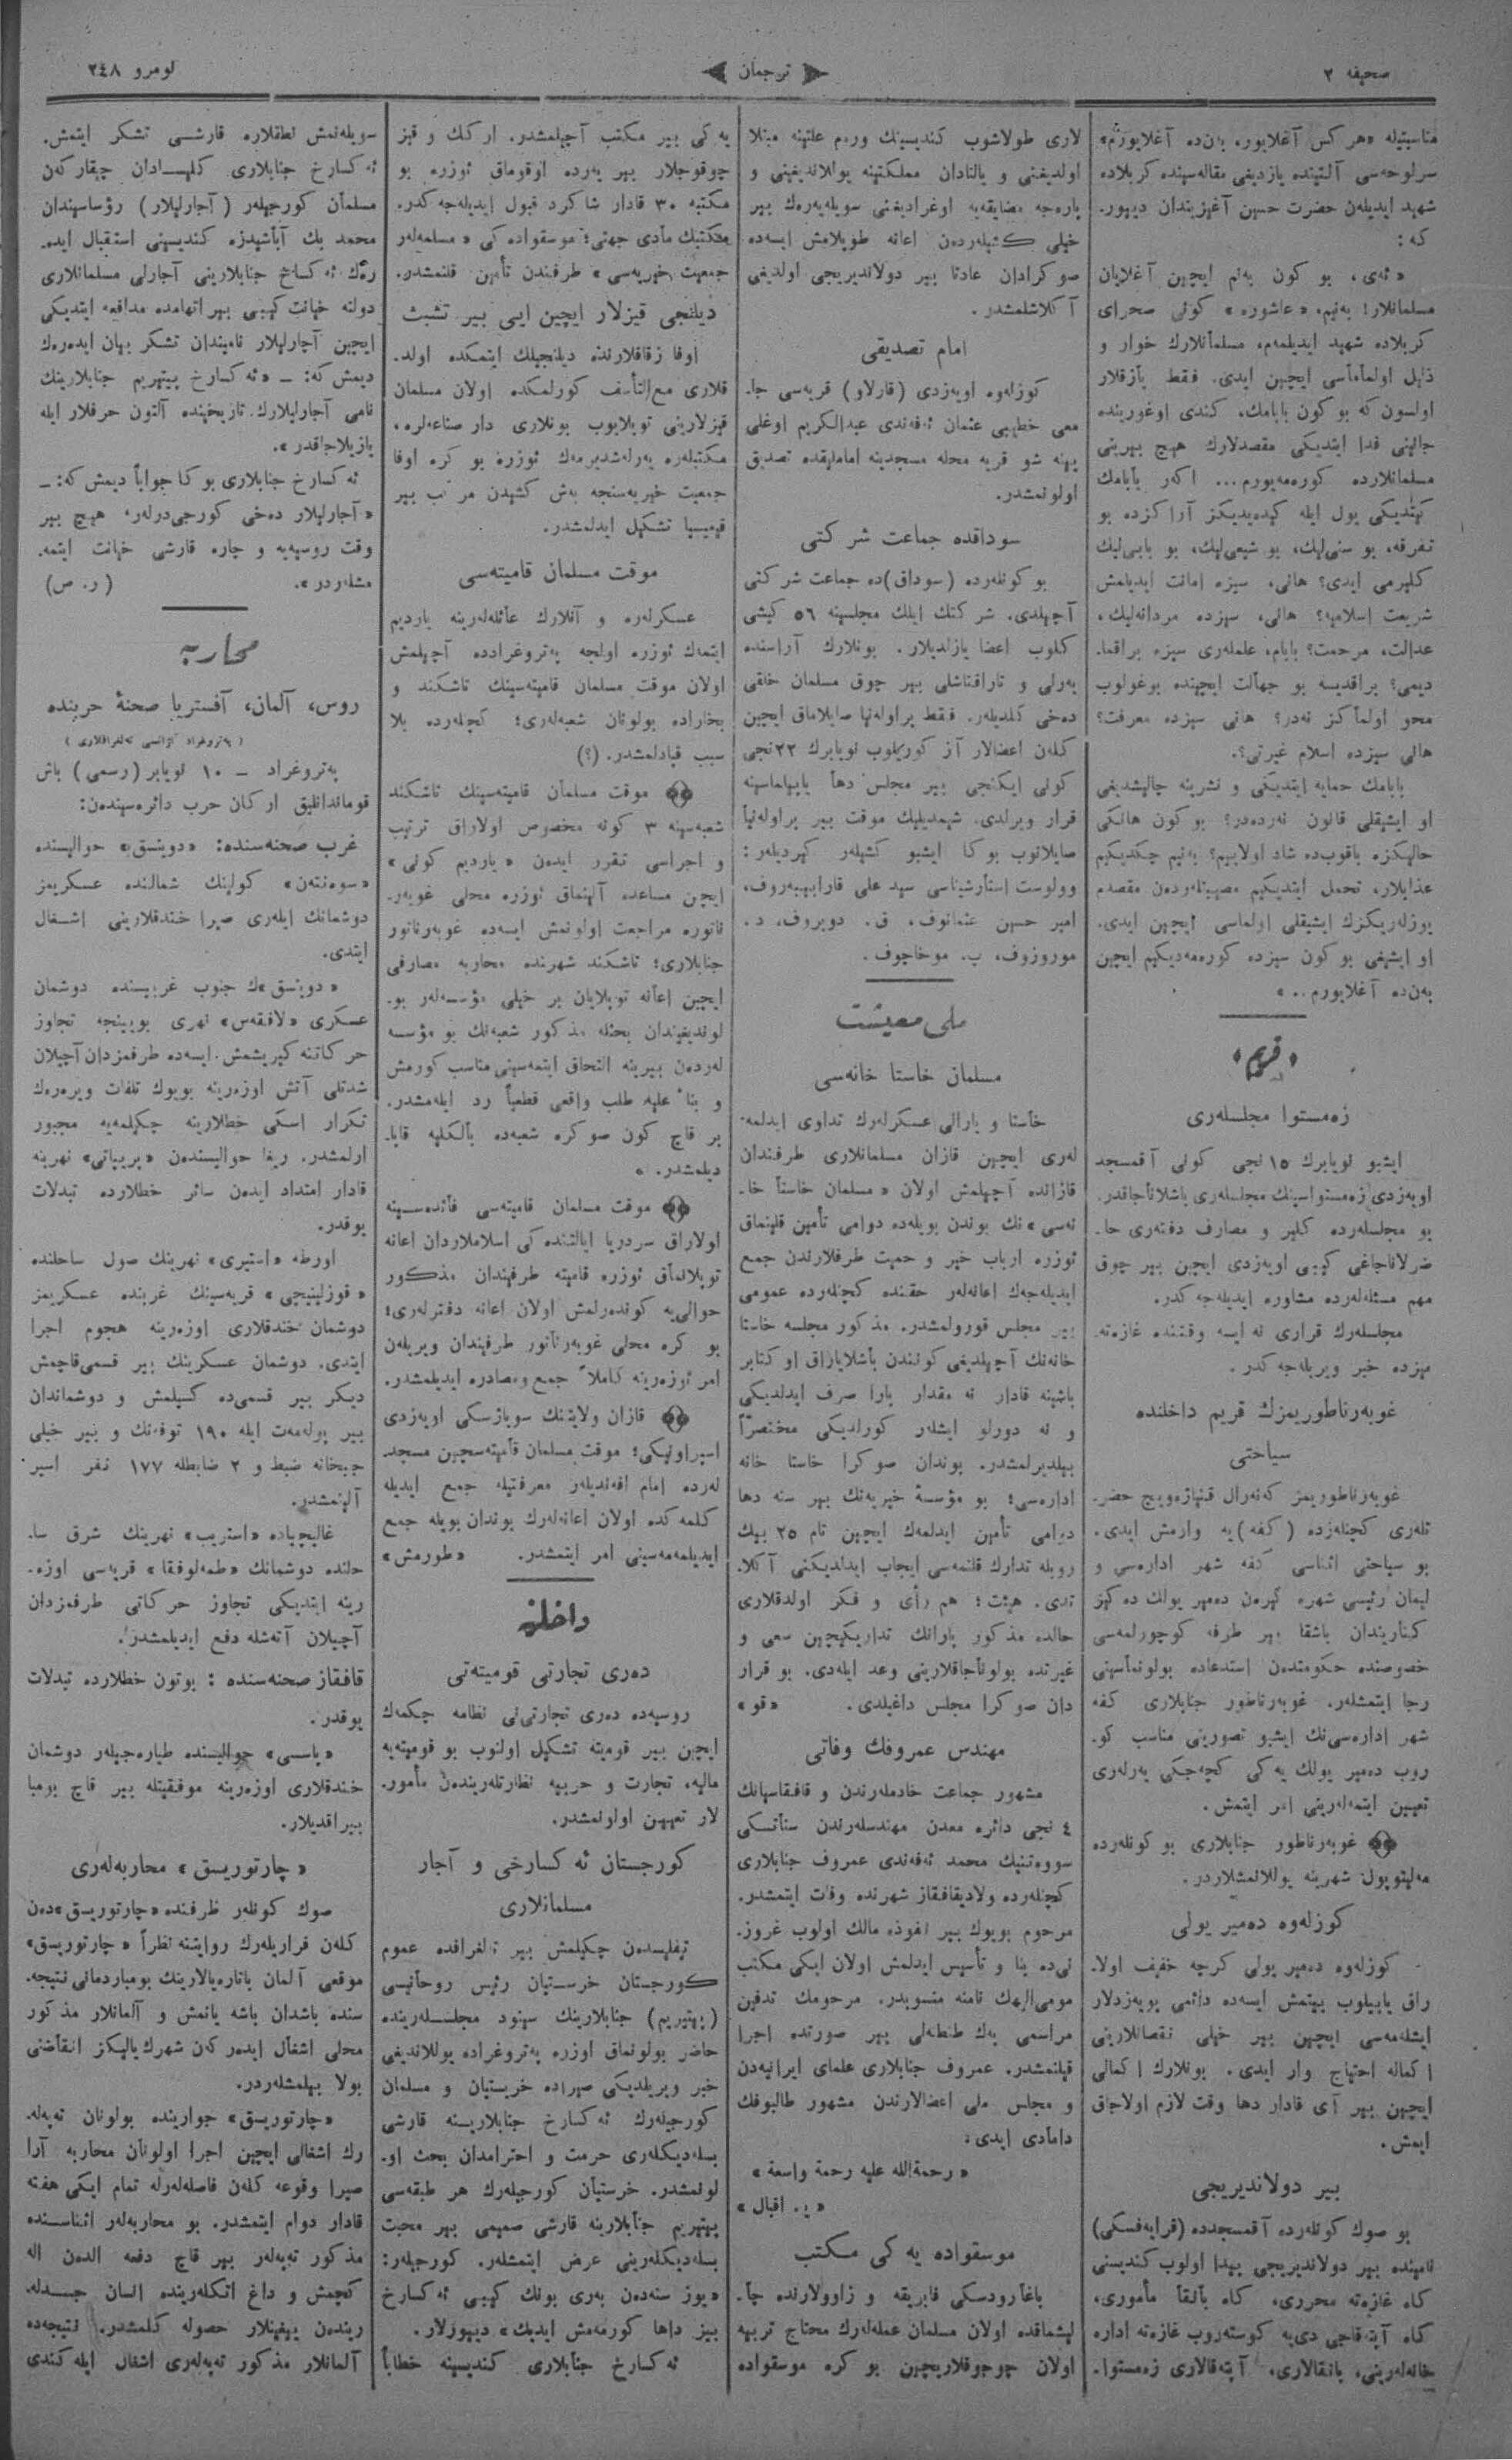 صحیفه ۲
ترجمان
نومرو ۲٤۸
مناسبتیله «هر كس آغلایور، بن‌ده آغلایورم»
سرلوحه‌سی آلتینده یازدیغی مقاله‌سینده كربلاده
شهید ایدیله‌ن حضرت حسین آغزیندان دییور.
كه :
« ئه‌ی، بو كون به‌نم ایچین آغلایان
مسلمانلار! به‌نیم، «عاشوره» كونی صحرای
كربلاده شهید ایدیلمه‌م، مسلمانلارك خوار و
ذلیل اولماماسی ایچین ایدی. فقط یازقلار
اولسون كه بو كون بابامك، كندی اوغورینده
جانینی فدا ایتدیكی مقصدلارك هیچ بیرینی
مسلمانلارده كوره‌مه‌یورم... اكر بابامك
كیتدیكی یول ایله كیده‌یدیكز آراكزده بو
تفرقه، بو سنی‌لیك، بو شیعی‌لیك، بو بابی‌لیك
كلیرمی ایدی؟ هانی، سیزه امانت ایدیلمش
شریعت اسلامیه؟ هانی، سیزده مردانه‌لیك،
عدالت، مرحمت؟ بابام، علمله‌ری سیزه براقما.
دیمی؟ براقدیسه بو جهالت ایچینده بوغولوب
محو اولماكز نه‌در؟ هانی سیزده معرفت؟
هانی سیزده اسلام غیرتی؟.
بابامك حمایه ایتدیكی و نشرینه چالیشدیغی
او ایشیقلی قانون نه‌رده‌در؟ بو كون هانكی
حالیكزه باقوب‌ده شاد اولابیم؟ به‌نیم چكدیكیم
عذابلار، تحمل ایتدیكیم مصیبتلردن مقصدم
یوزله‌ریكزك ایشیقلی اولماسی ایچین ایدی.
او ایشیغی بو كون سیزده كوره‌مه‌دیكیم ایچین
به‌ن‌ده آغلایورم.. »
«قریم»
زه‌مستوا مجلسله‌ری
ایشبو نویابرك ۱٥نجی كونی آقمسجد
اویه‌زدی زه‌مستواسینك مجلسله‌ری باشلاناجاقدر.
بو مجلسله‌رده كلیر و مصارف دفته‌ری حا.
ضرلاناجاغی كیبی اویه‌زدی ایچین بیر چوق
مهم مسئله‌له‌رده مشاوره ایدیله‌جه‌كدر.
مجلسله‌رك قراری نه ایسه وقتنده غازه‌ته.
میزده خبر ویریله‌جه‌كدر.
غوبه‌رناطوریمزك قریم داخلنده
سیاحتی
غوبه‌رناطوریمز كه‌نه‌رال قنیازه‌ویچ حضر.
تله‌ری كچنله‌رده (كفه)یه وارمش ایدی.
بو سیاحتی اثناسی كفه شهر اداره‌سی و
لیمان رئیسی شهره كیره‌ن ده‌میر یولك ده‌كیز
كناریندان باشقا بیر طرفه كوچورلمه‌سی
خصوصنده حكومتدن استدعاده بولونماسینی
رجا ایتمشله‌ر. غوبه‌رناطور جنابلاری كفه
شهر اداره‌سی‌نك ایشبو تصورینی مناسب كو.
روب ده‌میر یولك یه‌كی كچه‌جكی یه‌رله‌ری
تعیین ایتمه‌له‌رینی امر ایتمش.
غوبه‌رناطور جنابلاری بو كونله‌رده
مه‌لیتوپول شهرینه یوللانمشلاردر.
كوزله‌وه ده‌میر یولی
كوزله‌وه ده‌میر یولی كرچه خفیف اولا.
راق یاپیلوب بیتمش ایسه‌ده دائمی پویه‌زدلار
ایشله‌مه‌سی ایچین بیر خیلی نقصانلارینی
اكماله احتیاج وار ایدی. بونلارك اكمالی
ایچین بیر آی قادار دها وقت لازم اولاجاق
ایمش.
بیر دولاندیریجی
بو صوك كونله‌رده آقمسجدده (قرایه‌فسكی)
نامینده بیر دولاندیریجی پیدا اولوب كندیسنی
كاه غازه‌ته محرری، كاه بانقا مأموری،
كاه آپته‌قاجی دی‌یه كوسته‌روب غازه‌ته اداره
خانه‌له‌رینی، بانقالاری، آپته‌قالاری زه‌مستوا.
لاری طولاشوب كندیسینك ورم علتینه مبتلا
اولدیغنی و یالتادان مملكتینه یوللاندیغینی و
پاره‌جه مضایقه‌یه اوغرادیغنی سویله‌یه‌رك بیر
خیلی كشیله‌رده‌ن اعانه طوپلامش ایسه‌ده
صوكرادان عادتا بیر دولاندیریجی اولدیغی
آكلاشلمشدر.
امام تصدیقی
كوزله‌وه اویه‌زدی (قارلاو) قریه‌سی جا.
معی خطیبی عثمان ئه‌فه‌ندی عبدالكریم اوغلی
ینه شو قریه محله مسجدینه اماملیقده تصدیق
اولونمشدر.
سوداقده جماعت شركتی
بو كونله‌رده (سوداق)ده جماعت شركتی
آچیلدی. شركتك ایلك مجلسینه ٥٦ كیشی
كلوب اعضا یازلدیلار. بونلارك آراسنده
یه‌رلی و تاراقتاشلی بیر چوق مسلمان خلقی
ده‌خی كلدیله‌ر. فقط پراوله‌نیا صایلاماق ایچین
كله‌ن اعضالار آز كوریلوب نویابرك ۲۲نجی
كونی ایكنجی بیر مجلس دها یاپیلماسینه
قرار ویرلدی. شیمدیلیك موقت بیر پراوله‌نیا
صایلانوب بوكا ایشبو كشیله‌ر كیردیله‌ر:
وولوست استارشیناسی سید علی قارابیبه‌روف،
امیر حسین عثمانوف، ق. دوبروف، د.
موروزوف، ب. موخاچوف.
ملی معیشت
مسلمان خاستا خانه‌سی
خاستا و یارالی عسكرله‌رك تداوی ایدلمه.
له‌ری ایچین قازان مسلمانلاری طرفندان
قازانده آچیلمش اولان «مسلمان خاستا خا.
نه‌سی»نك بوندن بویله‌ده دوامی تأمین قلینماق
ئوزره ارباب خیر و حمیت طرفلارندن جمع
ایدیله‌جه‌ك اعانه‌له‌ر حقنده كچنله‌رده عمومی
بیر مجلس قورولمشدر. مذكور مجلسه خاستا
خانه‌نك آچیلدیغی كوندن باشلایاراق اوكتابر
باشینه قادار نه مقدار پارا صرف ایدلدیكی
و نه دورلو ایشله‌ر كورلدیكی مختصراً
بیلدیرلمشدر. بوندان صوكرا خاستا خانه
اداره‌سی؛ بو مؤسسهٔ خیریه‌نك بیر سنه دها
دوامی تأمین ایدلمه‌ك ایچین تام ۲٥ بیك
روبله تدارك قلنمه‌سی ایجاب ایدلدیكنی آكلا.
تدی. هیئت؛ هم رأی و فكر اولدقلاری
حالده مذكور پارانك تداریكیچین سعی و
غیرتده بولوناجاقلارینی وعد ایله‌دی. بو قرار
دان صوكرا مجلس داغیلدی. «قو»
مهندس عمروفك وفاتی
مشهور جماعت خادمله‌رندن و قافقاسیانك
٤ نجی دائره معدن مهندسله‌رندن ستاتسكی
سووه‌تنیك محمد ئه‌فه‌ندی عمروف جنابلاری
كچنله‌رده ولادیقافقاز شهرنده وفات ایتمشدر.
مرحوم بویوك بیر نفوذه مالك اولوب غروز.
نی‌ده بنا و تأسیس ایدلمش اولان ایكی مكتب
مومی‌الیهك نامنه منسوبدر. مرحومك تدفین
مراسمی په‌ك طنطه‌لی بیر صورتده اجرا
قیلنمشدر. عمروف جنابلاری علمای ایرانیه‌دن
و مجلس ملی اعضالارندن مشهور طالبوفك
دامادی ایدی.
« رحمةالله علیه رحمة واسعة »
« ی. اقبال »
موسقواده یه‌كی مكتب
باغارودسكی فابریقه و زاوولارنده چا.
لیشماقده اولان مسلمان عمله‌له‌رك محتاج تربیه
اولان چوجوقلاریچین بو كره موسقواده
یه‌كی بیر مكتب آچیلمشدر. اركك و قیز
چوقوجلار بیر یه‌رده اوقوماق ئوزره بو
مكتبه ۳۰ قادار شاكرد قبول ایدیله‌جه‌كدر.
مكتبك مادی جهتی؛ موسقواده‌كی «مسلمه‌له‌ر
جمعیت خیریه‌سی» طرفندن تأمین قلنمشدر.
دیلنجی قیزلار ایچین ایی بیر تشبث
اوفا زقاقلارنده دیلنجیلك ایتمكده اولد.
قلاری مع‌التأسف كورلمكده اولان مسلمان
قیزلارینی توپلایوب بونلاری دار صناعه‌لره،
مكتبله‌ره یه‌رله‌شدیرمه‌ك ئوزره بو كره اوفا
جمعیت خیریه‌سنجه به‌ش كشیدن مركب بیر
قمیسیا تشكیل ایدلمشدر.
موقت مسلمان قامیته‌سی
عسكرله‌ره و آنلارك عائله‌له‌رینه یاردیم
ایتمه‌ك ئوزره اولجه په‌تروغرادده آچیلمش
اولان موقت مسلمان قامیته‌سینك تاشكند و
بخاراده بولونان شعبه‌له‌ری؛ كچنله‌رده بلا
سبب قپادلمشدر. (؟)
موقت مسلمان قامیته‌سینك تاشكند
شعبه‌سینه ۳ كونه مخصوص اولاراق ترتیب
و اجراسی تقرر ایدن «یاردیم كونی»
ایچین مساعده آلینماق ئوزره محلی غوبه‌ر.
ناتوره مراجعت اولونمش ایسه‌ده غوبه‌رناتور
جنابلاری؛ تاشكند شهرنده محاربه مصارفی
ایچین اعانه توپلایان بر خیلی مؤسسه‌له‌ر بو.
لوندیغیندان بحثله مذكور شعبه‌نك بو مؤسسه
له‌ردن بیرینه التحاق ایتمه‌سینی مناسب كورمش
و بناءً علیه طلب واقعی قطعیاً رد ایله‌مشدر.
بر قاچ كون صوكره شعبه‌ده بالكلیه قابا.
دیلمشدر.
موقت مسلمان قامیته‌سی فائده‌سینه
اولاراق سردریا ایالتنده‌كی اسلاملاردان اعانه
توپلانماق ئوزره قامیته طرفیندان مذكور
حوالی‌یه كونده‌رلمش اولان اعانه دفترله‌ری؛
بو كره محلی غوبه‌رناتور طرفیندان ویریله‌ن
امر ئوزه‌رینه كاملاً جمع و مصادره ایدیلمشدر.
قازان ولایتنك سویاژسكی اویه‌زدی
اسپراونیكی؛ موقت مسلمان قامیته‌سیچین مسجد
له‌رده امام افندیله‌ر معرفتیله جمع ایدیله
كلمه‌كده اولان اعانه‌له‌رك بوندان بویله جمع
ایدیلمه‌مه‌سینی امر ایتمشدر. «طورمش»
داخلیه
ده‌ری تجارتی قومیته‌تی
روسیه‌ده ده‌ری تجارتی‌نی نظامه چكمه‌ك
ایچین بیر قومیته تشكیل اولنوب بو قومیته‌یه
مالیه، تجارت و حربیه نظارتله‌رینده‌ن مأمور.
لار تعیین اولونمشدر.
كورجستان ئه‌كسارخی و آجار
مسلمانلاری
تیفلیسدن چكیلمش بیر تلغرافده عموم
كورجستان خرستیان رئیس روحانیسی
(پیتیریم) جنابلارینك سینود مجلسله‌رینده
حاضر بولونماق اوزره په‌تروغراده یوللاندیغی
خبر ویریلدیكی صیراده خریستیان و مسلمان
كورجیله‌رك ئه‌كسارخ جنابلارینه قارشی
بسله‌دیكله‌ری حرمت و احترامدان بحث او.
لونمشدر. خرستیان كورجیله‌رك هر طبقه‌سی
پیتیریم جنابلارینه قارشی صمیمی بیر محبت
بسله‌دیكله‌رینی عرض ایتمشله‌ر. كورجیله‌ر:
«یوز سنه‌دن به‌ری بونك كیبی ئه‌كسارخ
بیز داها كورمه‌مش ایدیك» دییورلار.
ئه‌كسارخ جنابلاری كندیسینه خطاباً
سویله‌نمش نطقلاره قارشی تشكر ایتمش.
ئه‌كسارخ جنابلاری كلیسادان چیقاركه‌ن
مسلمان كورجیله‌ر (آجارلیلار) رؤساسیندان
محمد بك آباشیدزه كندیسینی استقبال ایده.
ره‌ك ئه‌كسارخ جنابلارینی آجارلی مسلمانلاری
دولته خیانت كیبی بیر اتهامده مدافعه ایتدیكی
ایچین آجارلیلار نامیندان تشكر بیان ایده‌رك
دیمش كه: ـ «ئه‌كسارخ پیتیریم جنابلارینك
نامی آجارلیلارك تاریخینده آلتون حرفلار ایله
یازیلاجاقدر».
ئه‌كسارخ جنابلاری بوكا جواباً دیمش كه: ـ
«آجارلیلار ده‌خی كورجی‌درله‌ر، هیچ بیر
وقت روسیه‌یه و چاره قارشی خیانت ایتمه.
مشله‌ردر». (ر. ص)
محاربه
روس، آلمان، آفستریا صحنهٔ حربنده
(په‌تروغراد آژانسی ته‌لغرافلاری)
په‌تروغراد ـ ۱۰ نویابر (رسمی) باش
قوماندانلیق اركان حرب دائره‌سیندن:
غرب صحنه‌سنده: «دوینسق» حوالیسنده
«سوه‌نته‌ن» كولینك شمالنده عسكریمز
دوشمانك ایله‌ری صیرا خندقلارینی اشغال
ایتدی.
«دوینسق»ك جنوب غربیسنده دوشمان
عسكری «لافقه‌س» نهری بویینجه تجاوز
حركاتنه كیریشمش ایسه‌ده طرفمزدان آچیلان
شدتلی آتش اوزه‌رینه بویوك تلفات ویره‌رك
تكرار اسكی خطلارینه چكیلمه‌یه مجبور
ارلمشدر. ریغا حوالیسندن «پریپاتی» نهرینه
قادار امتداد ایدن سائر خطلارده تبدلات
یوقدر.
اورطه «استیری» نهرینك صول ساحلنده
«قوزلینیچی» قریه‌سینك غربنده عسكریمز
دوشمان خندقلاری اوزه‌رینه هجوم اجرا
ایتدی. دوشمان عسكرینك بیر قسمی قاچمش
دیكر بیر قسمی‌ده كسیلمش و دوشماندان
بیر پوله‌مه‌ت ایله ۱۹۰ توفه‌نك و بیر خیلی
جبخانه ضبط و ۲ ضابطله ۱۷۷ نفر اسیر
آلینمشدر.
غالیچیاده «استریب» نهرینك شرق سا.
حلنده دوشمانك «طمه‌لوفقا» قریه‌سی اوزه.
رینه ایتدیكی تجاوز حركاتی طرفمزدان
آچیلان آته‌شله دفع ایدیلمشدر.
قافقاز صحنه‌سنده : بوتون خطلارده تبدلات
یوقدر.
«یاسسی» حوالیسنده طیاره‌جیله‌ر دوشمان
خندقلاری اوزه‌رینه موفقیتله بیر قاچ بومبا
بیراقدیلار.
«چارتوریسق» محاربه‌له‌ری
صوك كونله‌ر ظرفنده «چارتوریسق»ده‌ن
كله‌ن فراریله‌رك روایتنه نظراً «چارتوریسق»
موقعی آلمان باتاره‌یالارینك بومباردمانی نتیجه.
سنده باشدان باشه یانمش و آلمانلار مذكور
محلی اشغال ایده‌ركه‌ن شهرك یالیكز انقاضنی
بولا بیلمشله‌ردر.
«چارتوریسق» جوارینده بولونان ته‌په‌له.
رك اشغالی ایچین اجرا اولونان محاربه آرا
صیرا وقوعه كله‌ن فاصله‌له‌رله تمام ایكی هفته
قادار دوام ایتمشدر. بو محاربه‌له‌ر اثناسنده
مذكور ته‌په‌له‌ر بیر قاچ دفعه الدن اله
كچمش و داغ اتكله‌رینده انسان جسدله.
ریندن ییغینلار حصوله كلمشدر. نتیجه‌ده
آلمانلار مذكور ته‌په‌له‌ری اشغال ایله كندی